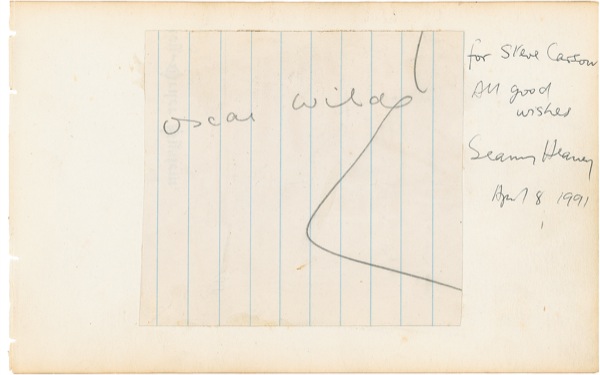 Oscar Wilde
for Steve Carson
All good
wishes
Seamus Heaney
April 8 1991